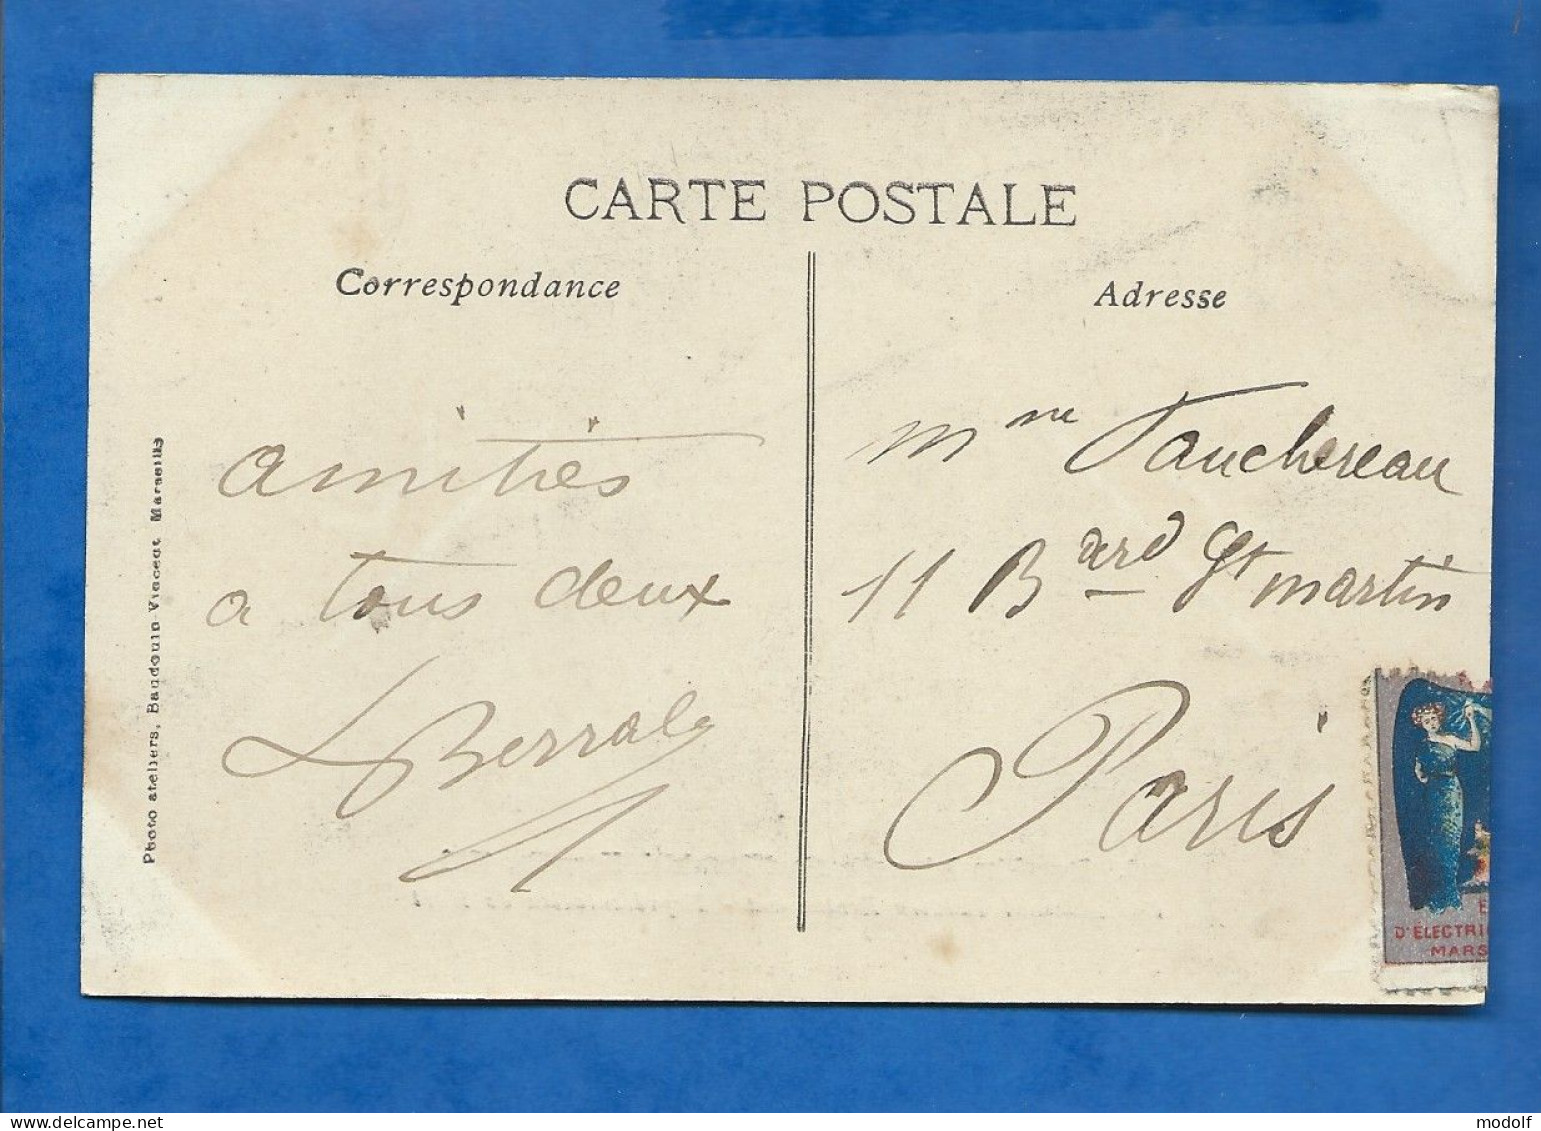 CARTE POSTALE
Correspondance
amitiés
a tous deux
LBerral
Photo ateliers, Baudouin-Vincent Marseille
Adresse
Mme Vauchereau
11 Bderd St martin
Paris
E
D'ELECTRI
MARS
www.delcampe.net
modolf